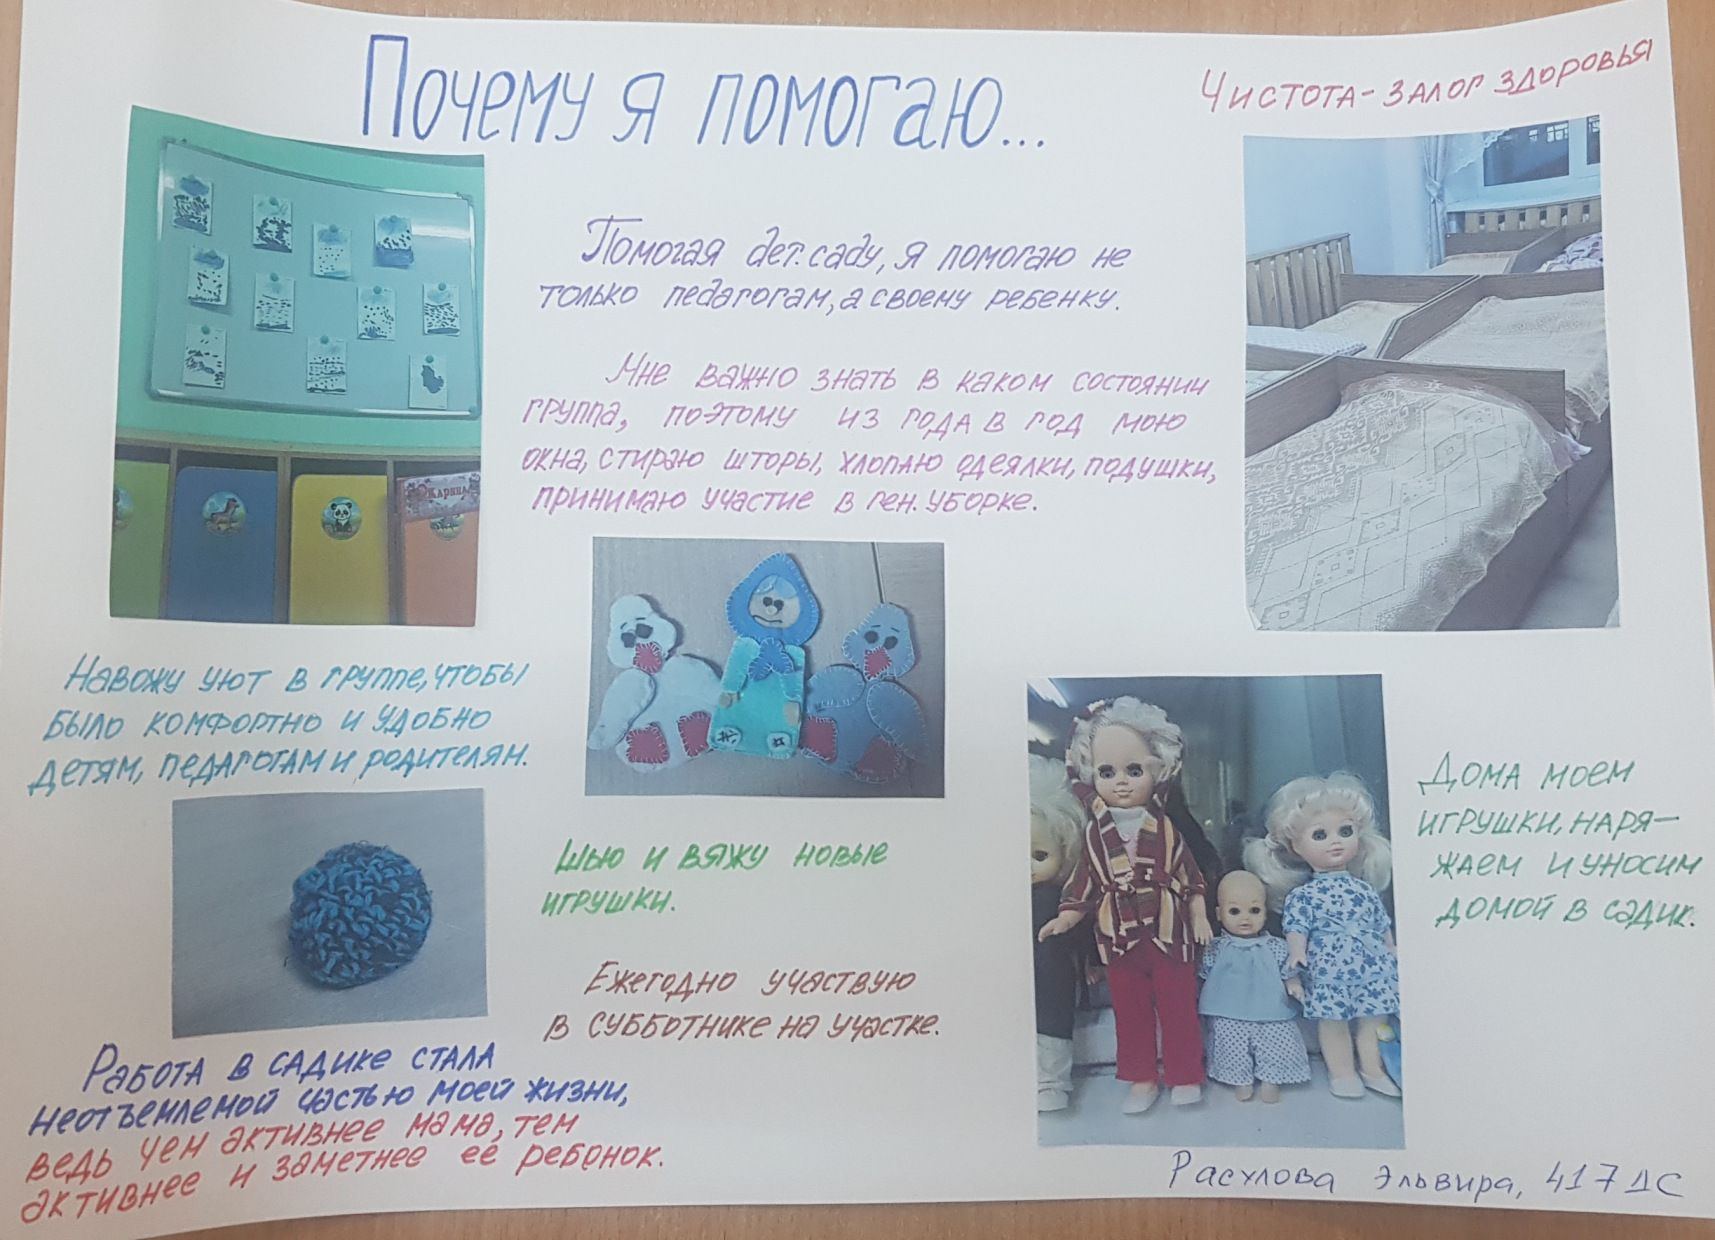 Почему я помогаю...
Чистота-залог здоровья
Помогая дет.саду, я помогаю не
только педагогам, а своему ребенку.
Мне важно знать в каком состоянии
группа, поэтому из года в год мою
окна, стираю шторы, хлопаю одеялки, подушки,
принимаю участие в ген. уборке.
Карина
Навожу уют в группе, чтобы
было комфортно и удобно
детям, педагогам и родителям.
Шью и вяжу новые
игрушки.
Дома моем
игрушки, наря-
жаем и уносим
домой в садик.
Ежегодно участвую
в субботнике на участке.
Работа в садике стала
неотъемлемой частью моей жизни,
ведь чем активнее мама, тем
активнее и заметнее её ребёнок.
Расулова Эльвира, 417 ДС